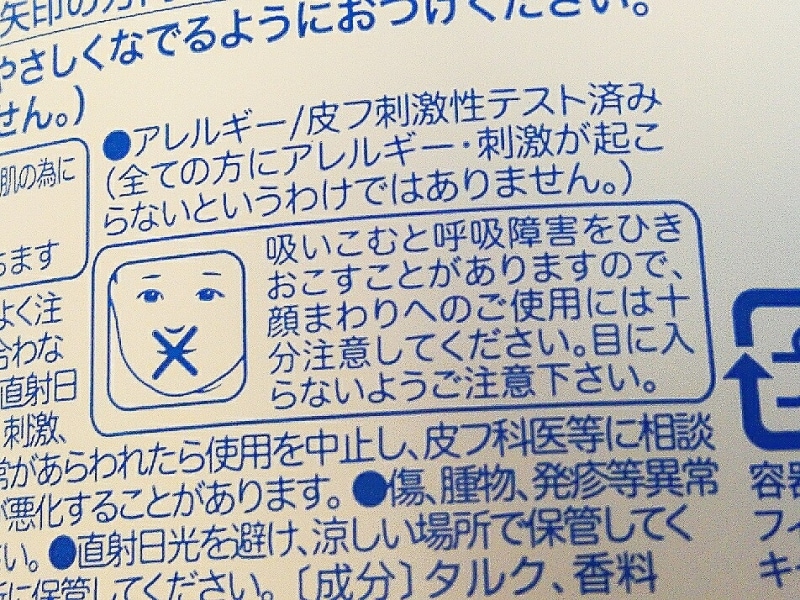 矢印の方向
やさしくなでるようにおつけください。
せん。)
●アレルギー/皮フ刺激性テスト済み
(全ての方にアレルギー・刺激が起こ
らないというわけではありません。)
肌の為に
ります
吸いこむと呼吸障害をひき
おこすことがありますので、
顔まわりへのご使用には十
分注意してください。目に入
らないようご注意下さい。
よく注
合わな
直射日
刺激、
常があらわれたら使用を中止し、皮フ科医等に相談
が悪化することがあります。●傷、腫物、発疹等異常
い。●直射日光を避け、涼しい場所で保管してく
所に保管してください。〔成分〕タルク、香料
容器
フィ
キー